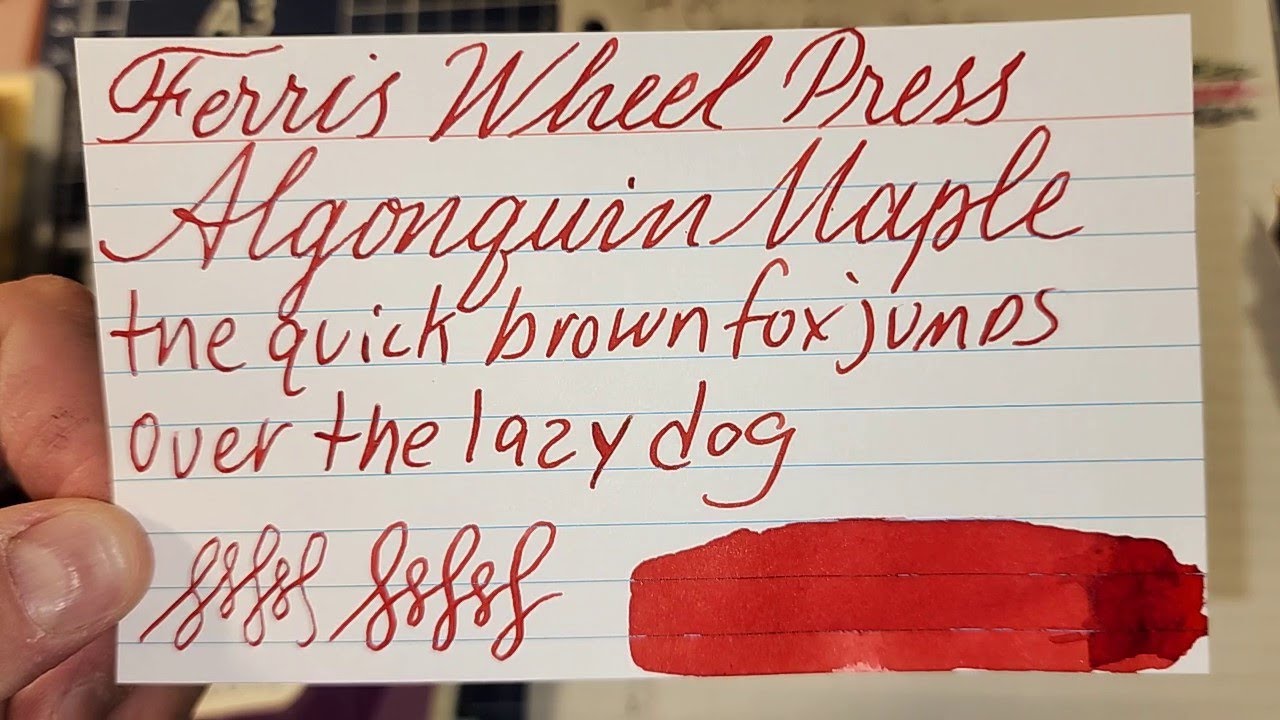 A3
Ferris Wheel Press
Algonquin Maple
the quick brown fox jumps
over the lazy dog